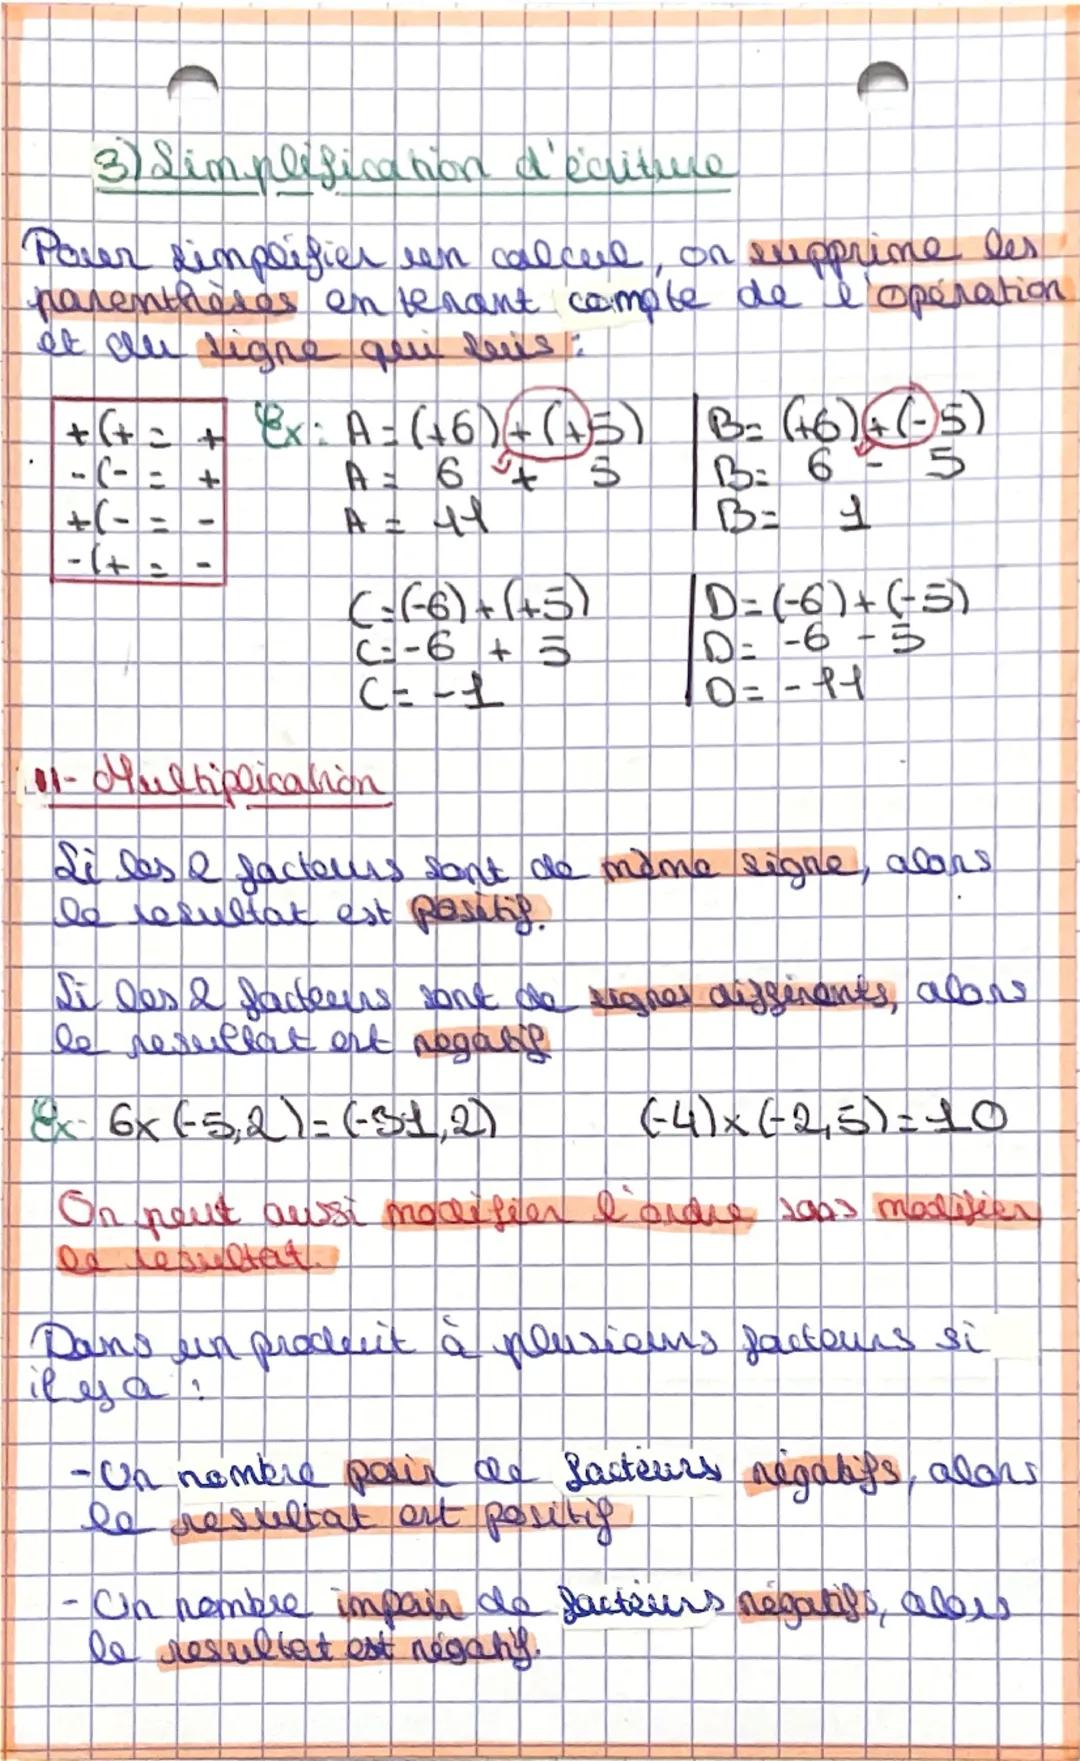 3) Simplification d'écriture
Pour simplifier un calcul, on supprime les
parenthèses en tenant compte de l'opération
et du signe qui suis :
+(+ = +
-(- = +
+(- = -
-(+ = -
Ex : A = (+6) + (+5)
A = 6 + 5
A = 11
B = (+6) + (-5)
B = 6 - 5
B = 1
C = (-6) + (+5)
C = -6 + 5
C = -1
D = (-6) + (-5)
D = -6 - 5
D = -11
II- Multiplication
Si les 2 facteurs sont de même signe, alors
le resultat est positif.
Si les 2 facteurs sont de signes différents, alors
le resultat est negatif
Ex: 6x (-5,2) = (-31,2) (-4) x (-2,5) = 10
On peut aussi modifier l'ordre sans modifier
le resultat.
Dans un produit à plusieurs facteurs si
il y a :
- Un nombre pair de facteurs négatifs, alors
le resultat est positif
- Un nombre impair de facteurs négatifs, alors
le resultat est négatif.